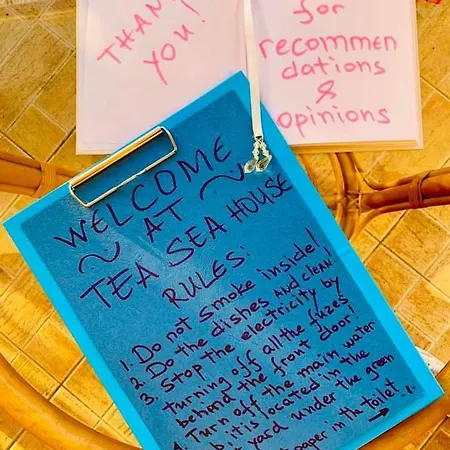 THANK
YOU!
for
recommen
dations
&
opinions
WELCOME
~ AT ~
TEA SEA HOUSE
RULES:
1. Do not smoke inside!
2. Do the dishes AND clean!
3. Stop the electricity by
turning off all the fuzes
behind the front door!
4. Turn off the main water
it is located in the
yard under the green
paper in the toilet